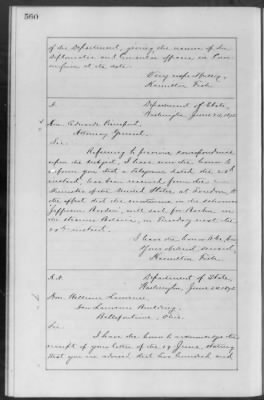 560
of the Department, giving the names of the
Diplomatic and Consular officers in Com-
mission at its date.
Very respectfully,
Hamilton Fish
Department of State,
Washington, June 22, 1875
Hon. Edwards Pierrepont,
Attorney General.
Sir:
Referring to previous correspondence
upon the subject, I have now the honor to
inform you that a telegram dated the 21st
instant, has been received from the
Minister of the United States at London, to
the effect that the mutineers in the schooner
Jefferson Borden, will sail for Boston, in
the steamer Batavia, on Tuesday next, the
29th instant.
I have the honor to be, Sir,
Your obedient servant,
Hamilton Fish.
Department of State,
Washington, June
Hon. William Lawrence,
Lawrence Building,
Bellefontaine, Ohio.
Sir:
I have the honor to acknowledge the
receipt of your letter of the 19 June, stating
that you are advised that two hundred and